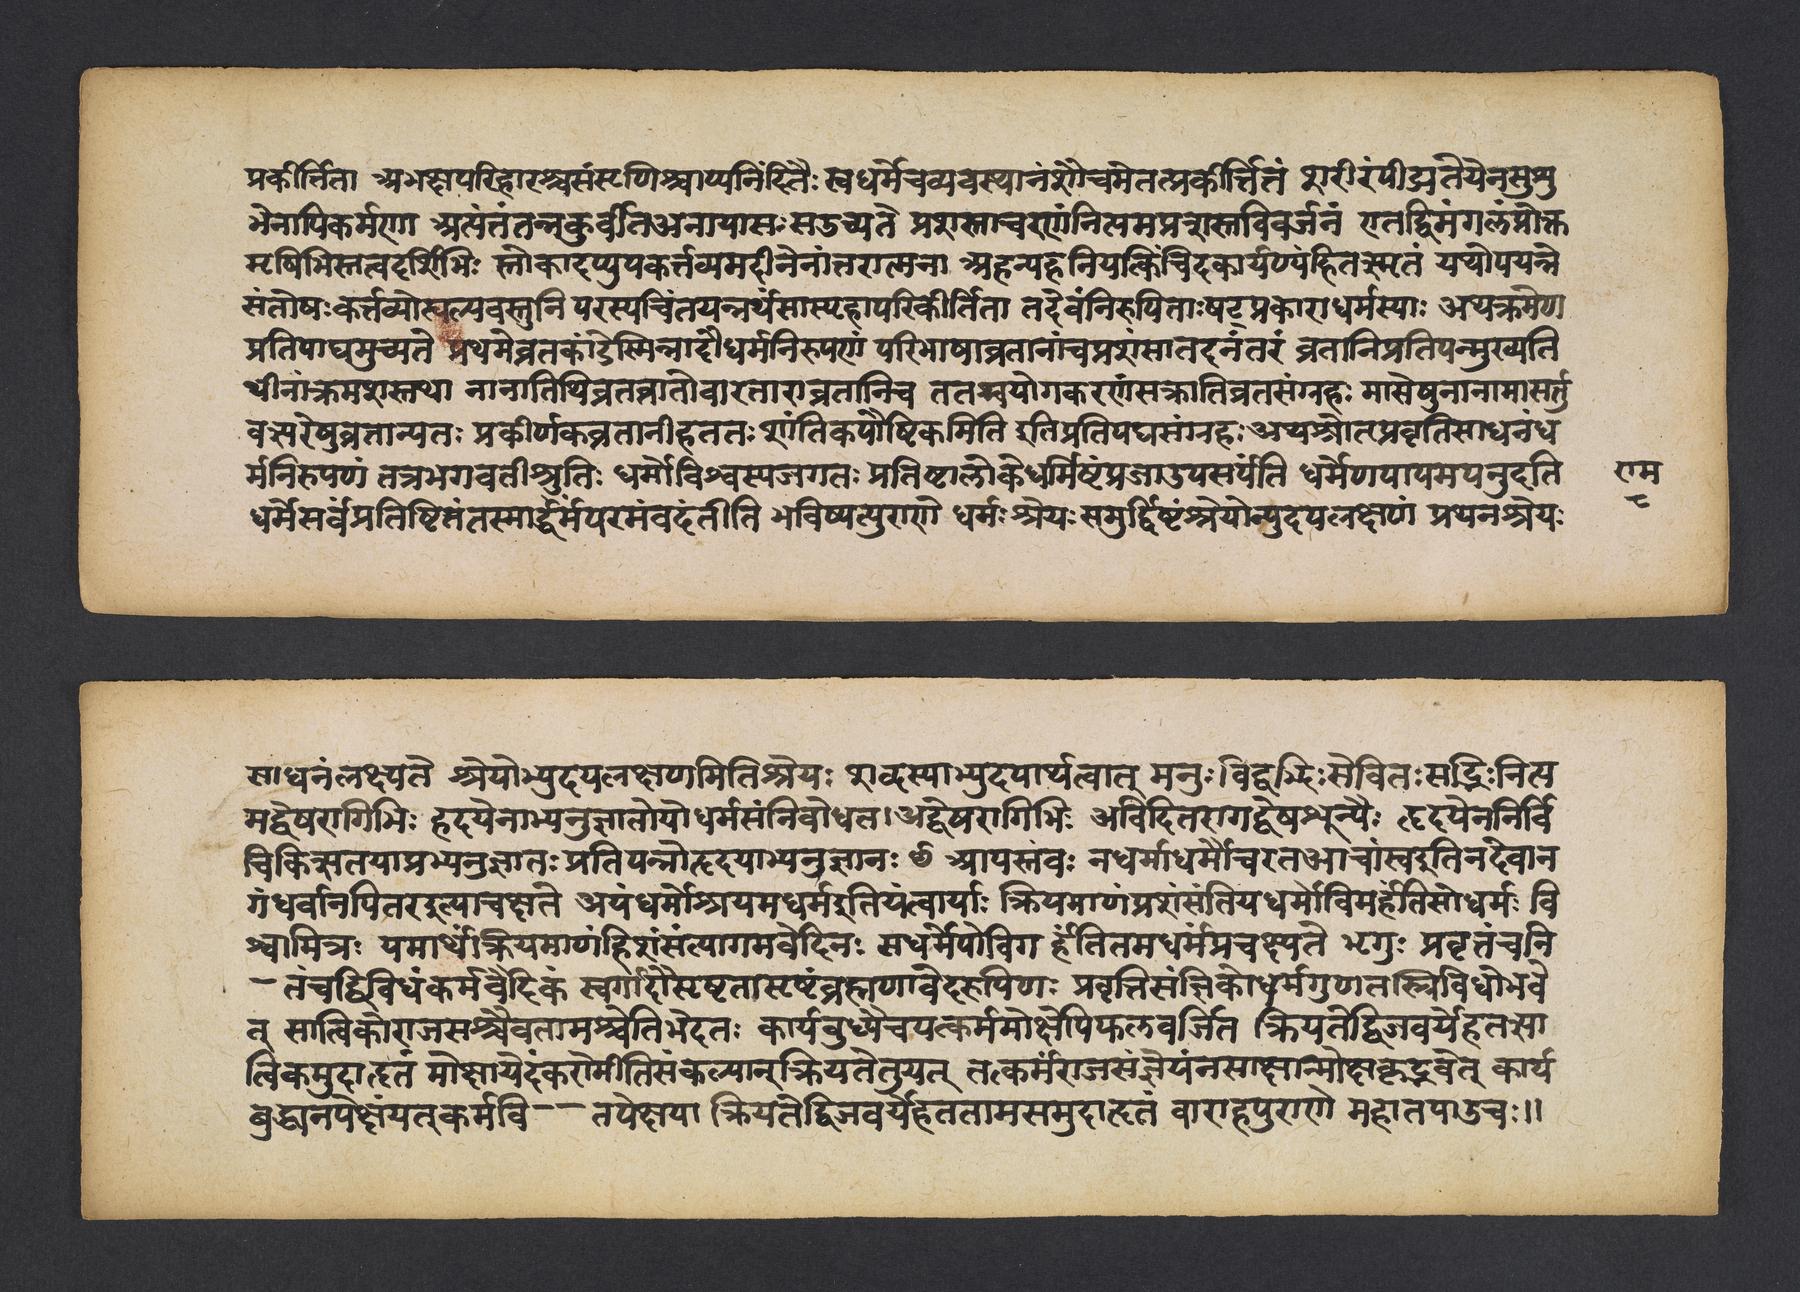 प्रकीर्त्तिता अभक्ष्यपरिहारश्चसंसर्गश्चाप्यनिंदितैः स्वधर्मेचव्यवस्थानंशौचमेतत्प्रकीर्त्तितं शरीरंपीड्यतेयेनसुशु
भेनापिकर्मणा अत्यंतंतन्नकुर्वीतिअनायासःसउच्यते प्रशस्ताचरणंनित्यमप्रशस्तविवर्जनं एतद्धिमंगलंप्रोक्त
मृषिभिस्तत्वदर्शिभिः स्तोकादप्युपकर्त्तव्यमदीनेनांत्तरात्मना अहन्यहनियत्किंचिदकार्यण्यंहितत्स्मृतं यथोपयन्ने
संतोषःकर्त्तव्योस्वल्पवस्तुनि परस्यचिंतयन्नर्थंसास्पृहापरिकीर्तिता तदेवंनिरुपिताःषट्प्रकाराधर्मस्याः अथक्रमेण
प्रतिपाद्यमुच्यते प्रथमेव्रतकांडेस्मिन्नादौधर्मनिरुपणं परिभाषाव्रतानांचप्रशंसातदनंतरं व्रतानिप्रतिपन्मुख्यति
थीनांक्रमशस्तथा नानातिथिव्रतव्रातोवारताराव्रतानिच ततश्चयोगकरणंसक्रातिव्रतसंग्रहः मासेषुनानामासर्त्तु
वत्सरेषुव्रतान्यतः प्रकीर्णकव्रतानीहततः शांतिकपौष्टिकमिति इतिप्रतिपद्यसंग्रहःअथश्रौतप्रवृतिसाधनंध
र्मनिरुपणं तत्रभगवतीश्रुतिः धर्मोविश्वस्यजगतः प्रतिष्टालोकेधर्मिष्टंप्रजाउपसर्पंति धर्मेणपापमपनुदति
धर्मेसर्वंप्रतिष्टितंतस्मार्द्धर्मंपरमंवदंतीति भविष्यत्पुराणे धर्मः श्रेयः समुर्द्दिष्टंश्रेयोन्पुदयलक्षणं प्रथनश्रेयः
राम
८
साधनंलक्ष्यते श्रेयोभ्युदयलक्षणमितिश्रेयः शब्दस्याभ्युदयार्थत्वात् मनुः विद्वद्भिःसेवितःसद्भिःनित्य
मद्वेषरागिभिः हृदयेनाभ्यनुज्ञातोयोधर्मसंनिबोधत।अद्वेषरागिभिः अविदितरागद्वेषश्रून्यैः हृदयेननिर्वि
चिकित्सतयाप्रभ्यनुज्ञातः प्रतिपन्नोहृदयाभ्यनुज्ञानः आपस्तंवः नधर्माधर्मौचरतआचांस्वइतिनदेवान
गंधर्वानपितरइत्याचक्षते अयंधर्मोश्रायमधर्मइतियंत्वार्याः क्रियमाणंप्रशंसंतियधर्मोविमर्हंतिसोधर्मः वि
श्वामित्रः यमार्थांक्रियमाणंहिशंसंत्यागमवेदिनः सधर्मेपोविग र्हंतितमधर्मंप्रचक्ष्यते भृगुः प्रवृत्तंचनि
- तंचद्विविधंकर्मवैदिकं स्वर्गादौसृष्टतासृष्टंव्रह्मणावेदरूपिणः प्रवृत्तिसंज्ञिकोधर्मगुणतस्त्रिविधोभवे
त् सात्विकोराजसश्चैवतामश्चेतिभेदतः कार्यबुध्यैचयत्कर्ममोक्षेपिफलवर्जित क्रियतेद्विजवर्येहतत्सा
त्विकमुदाहृतं मोक्षायेदंकरोमीतिसंकल्पानक्रियतेतुयत् तत्कर्मंराजसंज्ञेयंनसाक्षान्मोक्षकृद्भवेत् कार्य
बुद्ध्यानपेक्षंयत्कर्मवि-- तपेक्षया क्रियतेद्विजवर्येहततामसमुदाहृतं वाराहपुराणे महातपाउचः॥